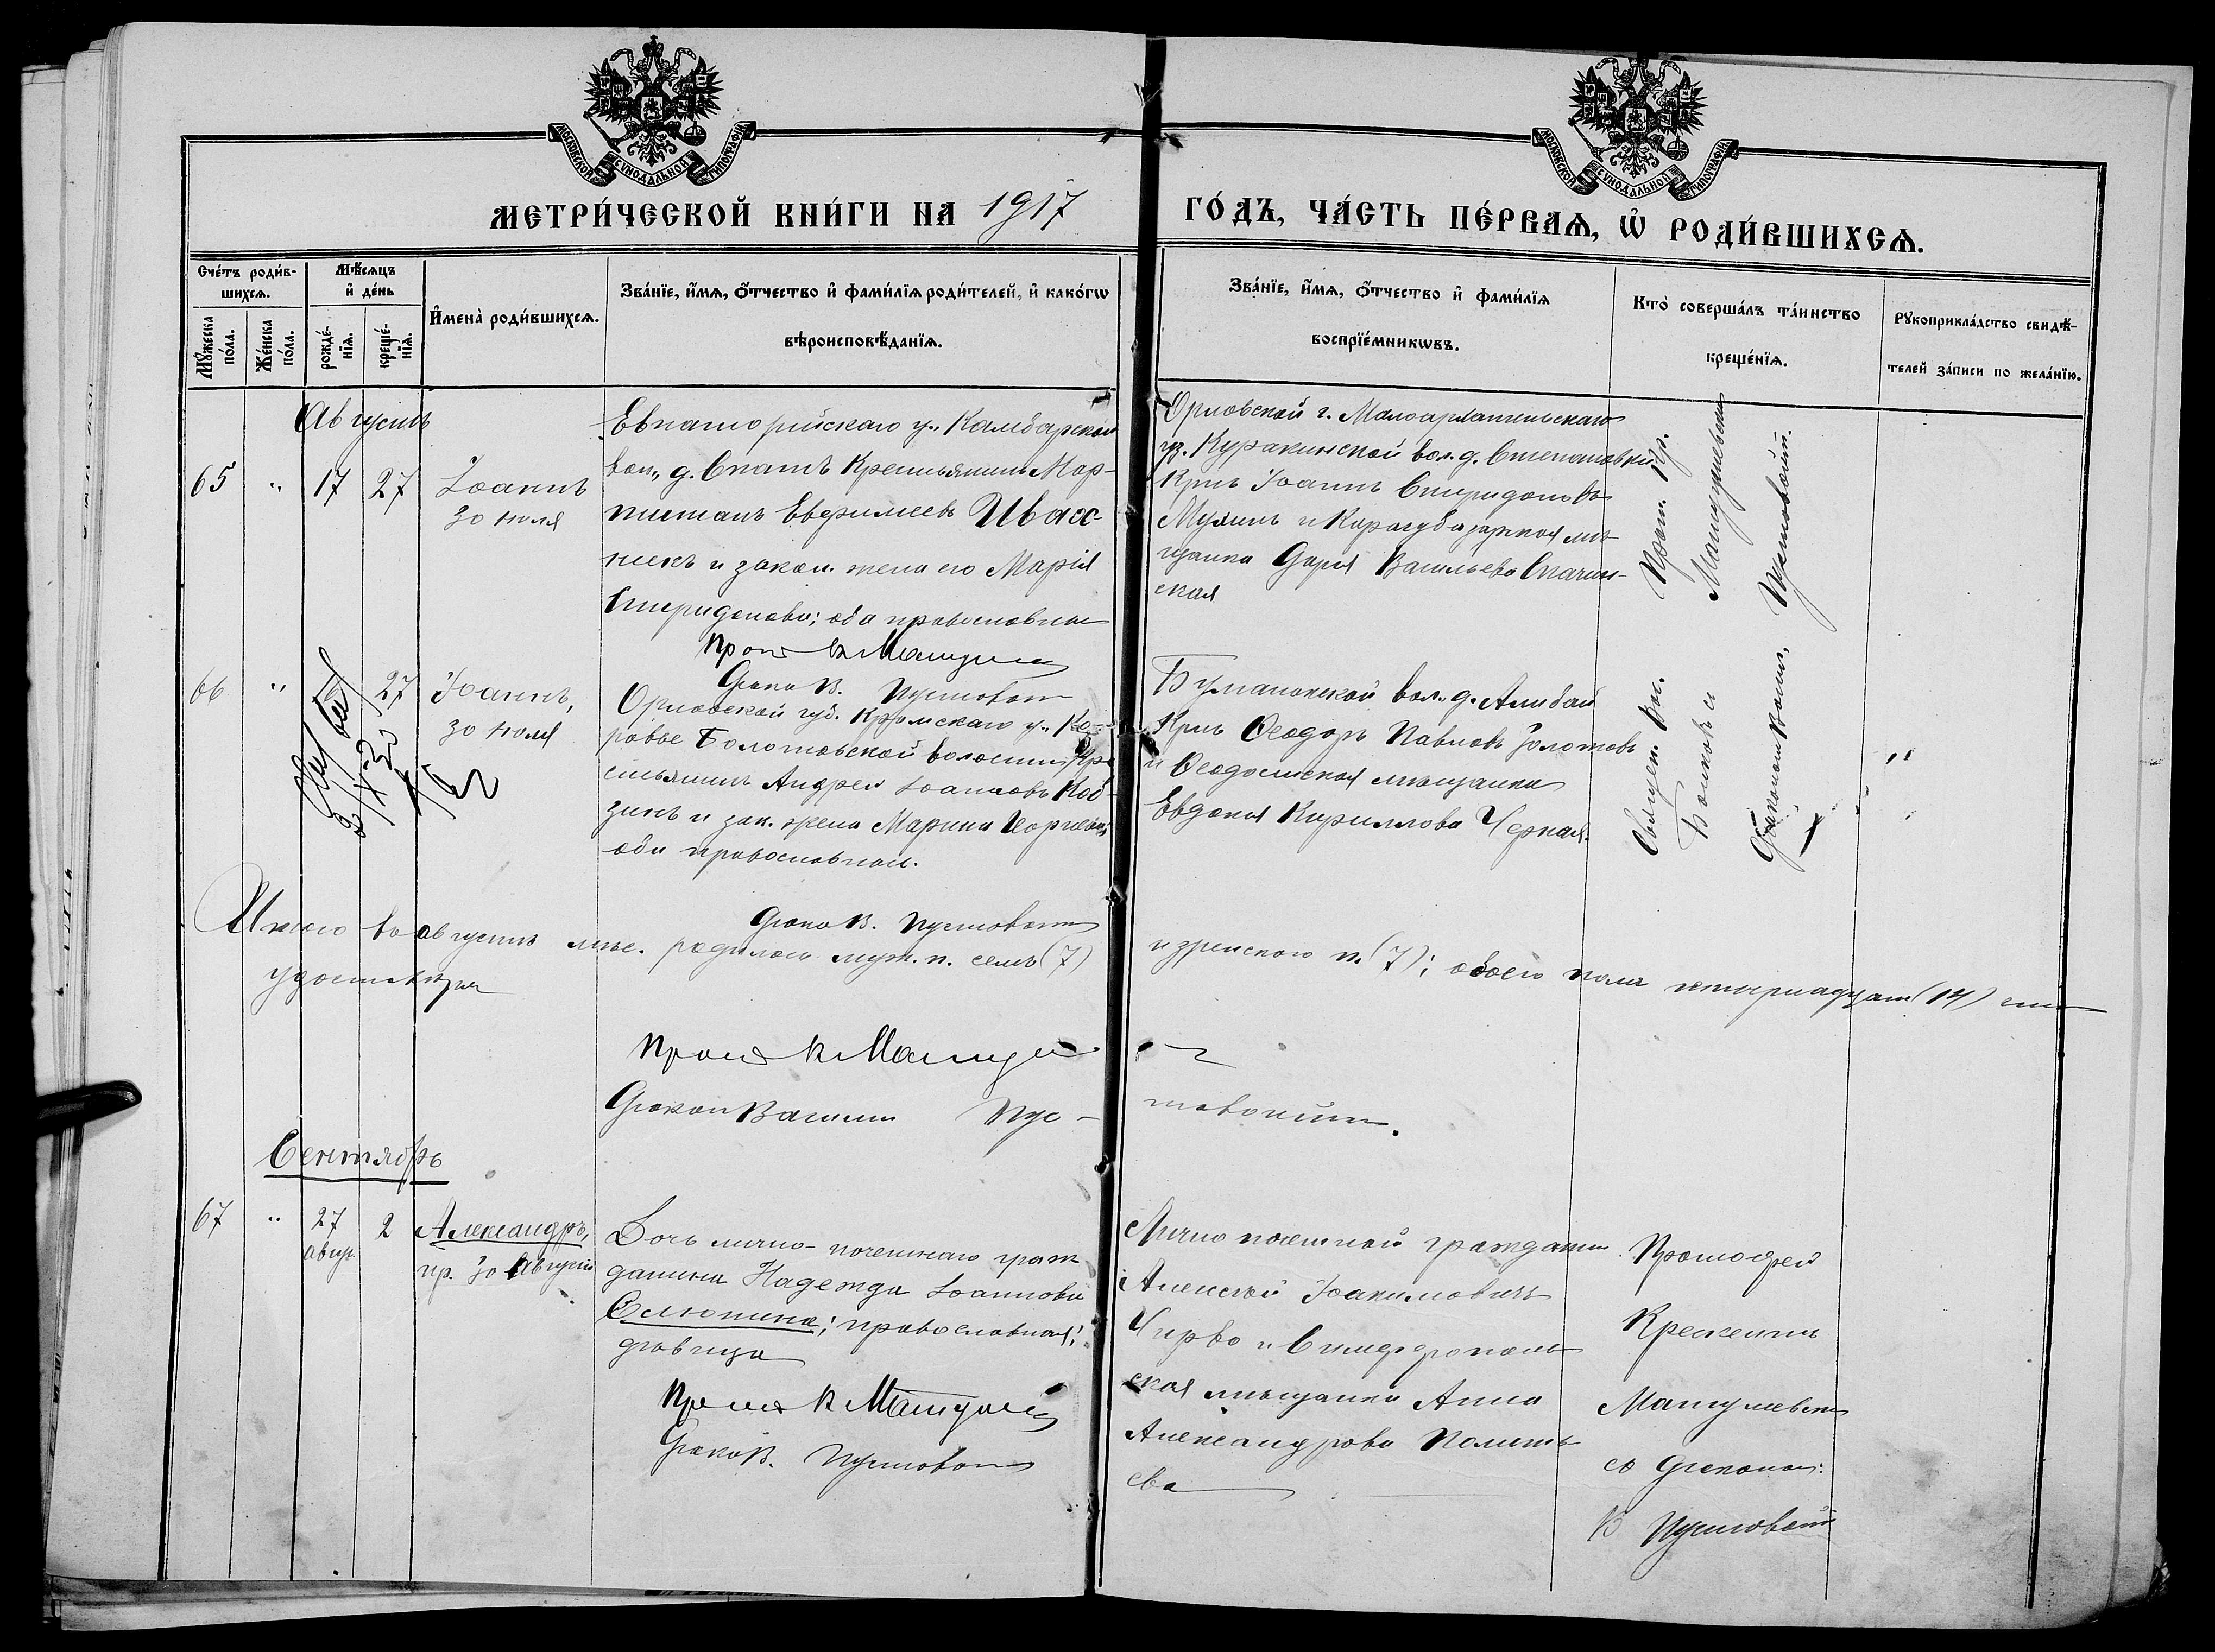 МОСКОВСКОЙ СѴНОДАЛЬНОЙ ТИПОГРАФІИ
МОСКОВСКОЙ СѴНОДАЛЬНОЙ ТИПОГРАФІИ
МЕТРИ́ЧЕСКОЙ КНИ́ГИ НА 1917
ГО́ДЪ, ЧА́СТЬ ПЕ́РВАѦ, Ѡ РОДИ́ВШИХСѦ.
Сче́тъ роди́в-
шихсѧ.
Мꙋ́жеска
по́ла.
Же́нска
по́ла.
Мѣ́сѧцъ
и҆ де́нь
рожде́-
нїѧ.
креще́-
нїѧ.
И҆мена̀ роди́вшихсѧ.
Зва́нїе, и҆́мѧ, ѻ҆́тчество и҆ фами́лїѧ роди́телей, и҆ како́гѡ
вѣроисповѣ́данїѧ.
Зва́нїе, и҆́мѧ, ѻ҆́тчество и҆ фами́лїѧ
воспрїе́мникѡвъ.
Кто̀ соверша́лъ та́инство
креще́нїѧ.
Рꙋкоприкла́дство свидѣ́-
телей за́писи по жела́нїю.
Августъ
65 " 17 27 Іоаннъ
30 іюля
Евпаторійскаго у., Камбарской
вол., д. Спатъ Крестьянинъ Мар-
Евфимеевъ Ивах-
ненъ и закон. жена его Марія
Спиридонова; оба православные
Прот. К Мац
Діако В. Пустовой
Орловской г. Малоархангельскаго
уѣз. Куракинской вол. д. Степановки
Крнъ Іоаннъ Спиридоновъ
Мухинъ и Карасубазарская мѣ-
щанка Дарія Васильева Спачин-
ская
Прот. Кр.
Мацулевичъ
66 " 27 Іоаннъ,
30 іюля
Орловской губ. Кромскаго у., Ко-
ровье Болотовской волости кре
стьянинъ Андрей Іоанновъ Коб-
зинъ и зак. жена Марина Георгіева
оба православные.
Діако В. Пустовойт
Бультанокской вол. д. Алибай
Крнъ Ѳеодоръ Павловъ Золотовъ
и Ѳеодосійская мѣщанка
Евдокія Кириллова Черная.
Священ. Вас.
Діаконом Васил. Пустовойт.
"
Итого въ августѣ мѣс. родилось муж. п. семь (7)
и женскаго п. (7); обоего пола четырнадцать (14) что
удостовѣр
Прот. К Мацуле
Діакон Василий Пус-
товойтъ.
Сентябрь
67 " 27 2 Александръ,
авгус
пр. 30 Августа
Дочь лично-почетнаго граж
данина Надежда Іоаннова
Селютина; православная;
дѣвица
Прот. К Мацулев
Діако В. Пустовой
Лично почетной гражданин
Алексѣй Іоакимовичъ
Чирво и Симферополь
ская мѣщанка Анна
Александрова Полить
ева
Протоіерей
Крискентъ
Мацулевич
съ Діаконом:
В Пустовойт